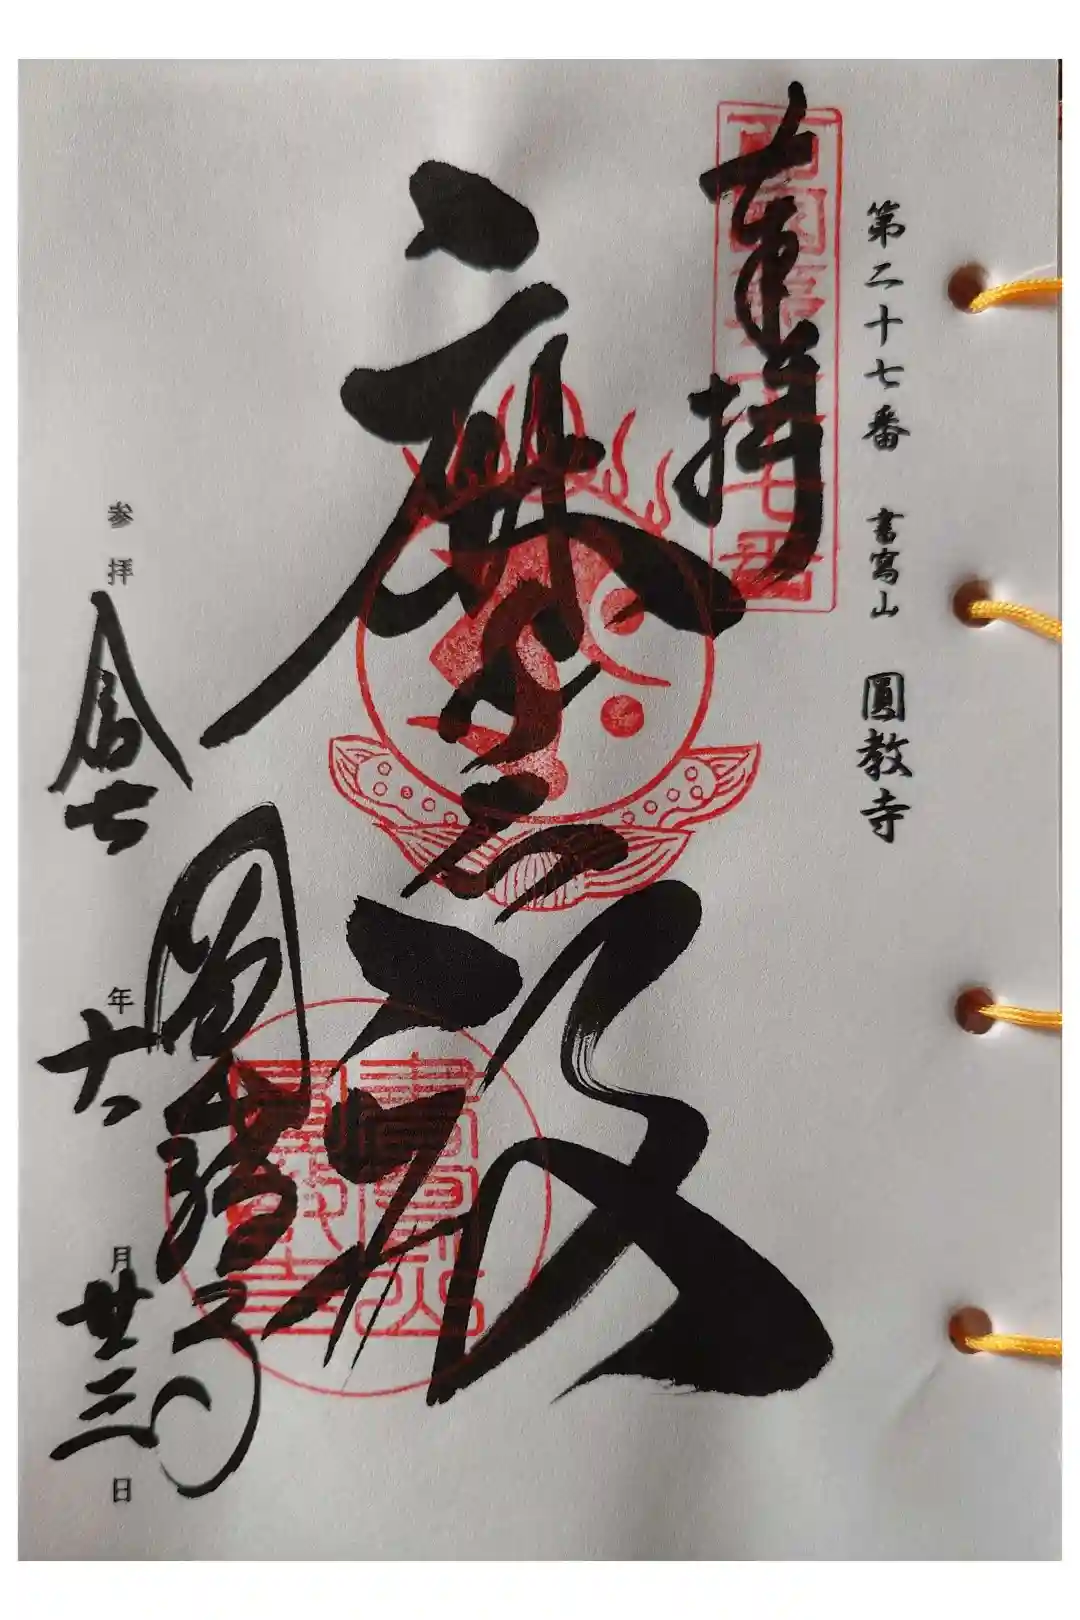 第二十七番 書寫山 圓教寺
奉拝
西国第二十七番
摩尼殿
書寫山
圓教寺
圓教寺
参拝 令七年六月廿三日